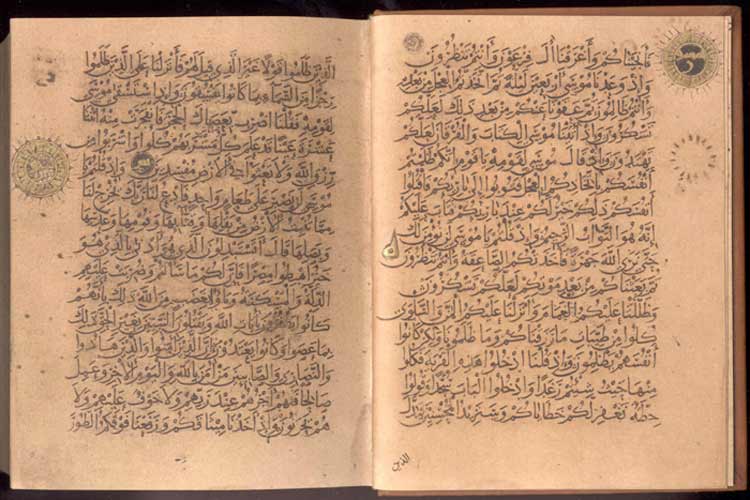 فأنجيناكم وأغرقنا آل فرعون وأنتم تنظرون
وإذ وعدنا موسى أربعين ليلة ثم اتخذتم العجل من بعده
وأنتم ظالمون ثم عفونا عنكم من بعد ذلك لعلكم
تشكرون وإذ آتينا موسى الكتاب والفرقان لعلكم
تهتدون وإذ قال موسى لقومه يا قوم إنكم ظلمتم
أنفسكم باتخاذكم العجل فتوبوا إلى بارئكم فاقتلوا
أنفسكم ذلكم خير لكم عند بارئكم فتاب عليكم
إنه هو التواب الرحيم وإذ قلتم يا موسى لن نؤمن لك
حتى نرى الله جهرة فأخذتكم الصاعقة وأنتم تنظرون
ثم بعثناكم من بعد موتكم لعلكم تشكرون
وظللنا عليكم الغمام وأنزلنا عليكم المن والسلوى
كلوا من طيبات ما رزقناكم وما ظلمونا ولكن كانوا
أنفسهم يظلمون وإذ قلنا ادخلوا هذه القرية فكلوا
منها حيث شئتم رغدا وادخلوا الباب سجدا وقولوا
حطة نغفر لكم خطاياكم وسنزيد المحسنين فبدل
الذين
الذين ظلموا قولا غير الذي قيل لهم فأنزلنا على الذين ظلموا
رجزا من السماء بما كانوا يفسقون وإذ استسقى موسى
لقومه فقلنا اضرب بعصاك الحجر فانفجرت منه اثنتا
عشرة عينا قد علم كل أناس مشربهم كلوا واشربوا من
رزق الله ولا تعثوا في الأرض مفسدين وإذ قلتم يا
موسى لن نصبر على طعام واحد فادع لنا ربك يخرج لنا
مما تنبت الأرض من بقلها وقثائها وفومها وعدسها
وبصلها قال أتستبدلون الذي هو أدنى بالذي هو
خير اهبطوا مصرا فإن لكم ما سألتم وضربت عليهم
الذلة والمسكنة وباؤوا بغضب من الله ذلك بأنهم
كانوا يكفرون بآيات الله ويقتلون النبيين بغير الحق ذلك
بما عصوا وكانوا يعتدون إن الذين آمنوا والذين هادوا
والنصارى والصابئين من آمن بالله واليوم الآخر وعمل
صالحا فلهم أجرهم عند ربهم ولا خوف عليهم ولا
هم يحزنون وإذ أخذنا ميثاقكم ورفعنا فوقكم الطور